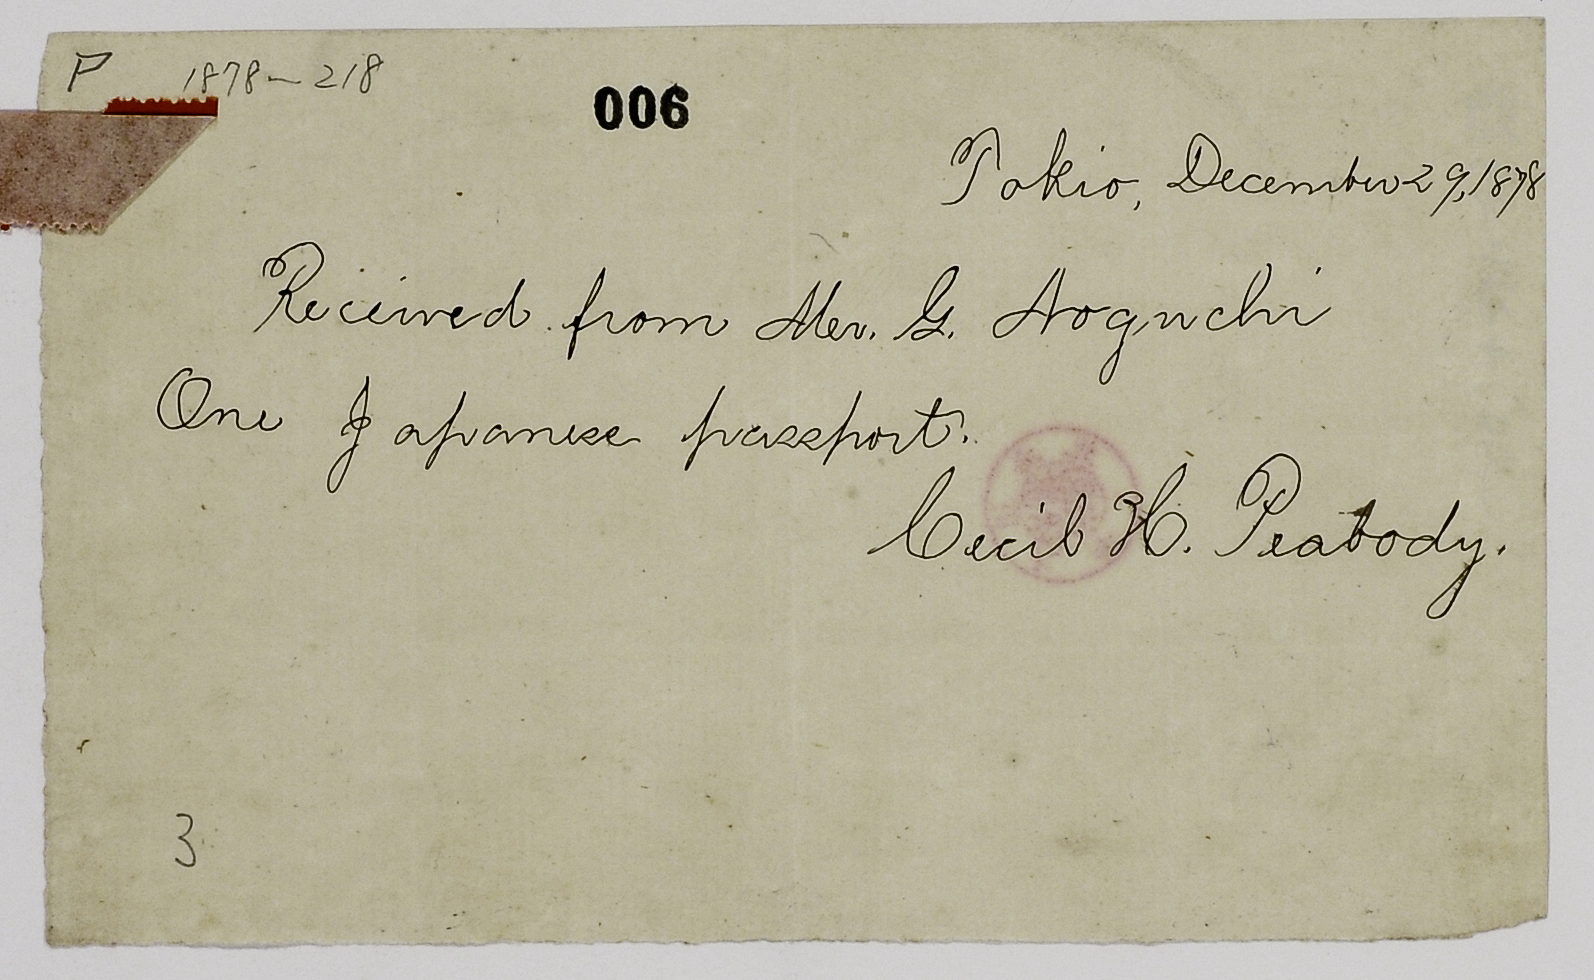 P 1878-218
006
Tokio, December 29, 1878
Received from Mr. G. Noguchi
One Japanese passport.
Cecil H. Peabody.
3